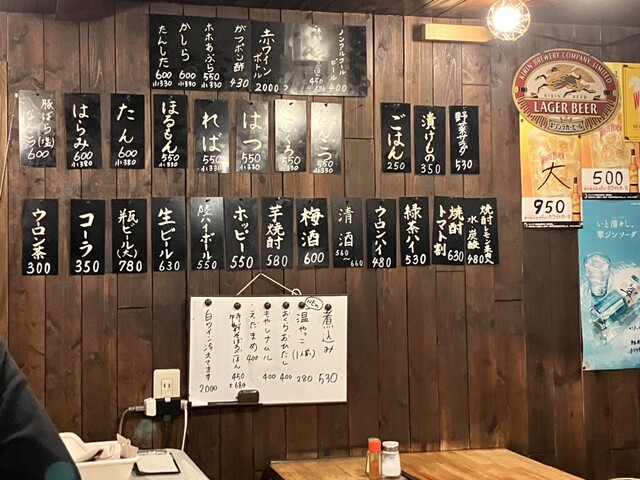 ノンアルコールビール 400
450
赤ワインボトル 2000
ガツポン酢 430
ホホあぶら 550 小330
かしら 600 小330
たんした 600 小330
野菜サラダ 530
漬けもの 350
ごはん 250
550
550
はつ 550
れば 550
ほるもん 550
たん 600 小330
はらみ 600 小330
豚ばら(塩)
600
焼酎
水・炭酸 480
焼酎トマト割 630
緑茶ハイ 530
ウロンハイ 480
清酒 560〜660
梅酒 600
芋焼酎 580
ホッピー 550
陸ハイボール 550
生ビール 630
瓶ビール(大) 780
コーラ 350
ウロン茶 300
煮込み 530
温やっこ 280
おくらおひたし 400
もやしナムル 400
えだまめ 400
そぼろごはん 450
680
白ワイン冷えてます 2000
KIRIN BREWERY COMPANY, LIMITED
LAGER BEER
大
950
500
いと清々し。
翠ジンソーダ